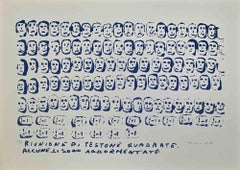 "RIUNIONE DI TESTONE QUADRATE.
ALCUNE SI SONO ADDORMENTATE